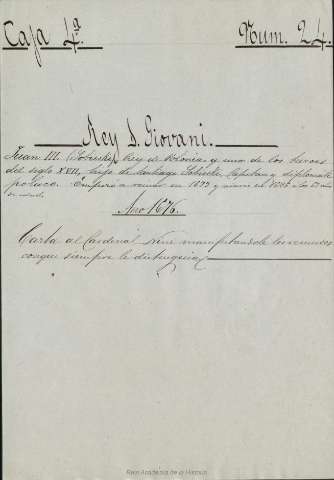 Caja 4ª
Num. 24.
Rey S. Giovani.
Juan III. (Sobieski) Rey de Polonia y uno de los heroes
del siglo XVII, hijo de Santiago Sobieski, Capitan y diplomático
polaco. Empezó a reinar en 1673 y murio en 1696 a los
de edad.
Año 1676.
Carta al Cardenal manifestandole los
conque siempre le distinguia
Real Academia de la Historia